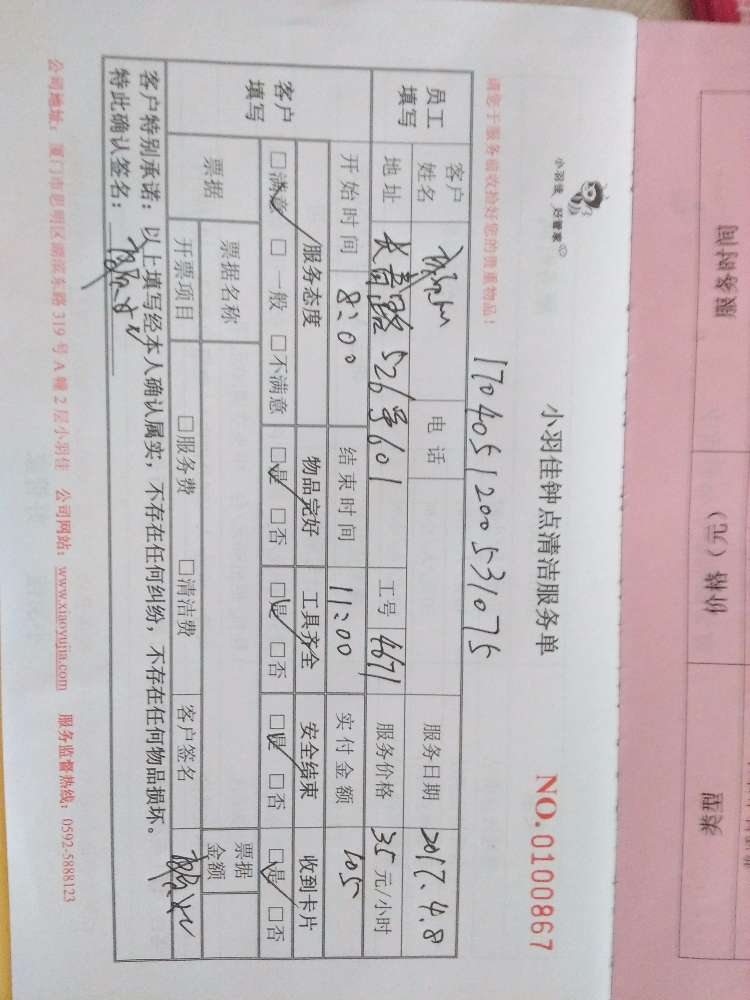 小羽佳 好管家
小羽佳钟点清洁服务单
NO.0100867
请您于服务前收捡好您的贵重物品！
1704051200531075
员工填写 客户姓名 电话 服务日期 2017.4.8
地址 长青路526号601 工号 4671 服务价格 35元/小时
客户填写 开始时间 8:00 结束时间 11:00 实付金额 105
服务态度 物品完好 工具齐全 安全结束 收到卡片
□满意 □一般 □不满意 □是 □否 □是 □否 □是 □否 □是 □否
票据 票据名称 票据金额
开票项目 □服务费 □清洁费 客户签名
客户特别承诺：以上填写经本人确认属实，不存在任何纠纷，不存在任何物品损坏。
特此确认签名：
公司地址：厦门市思明区湖滨东路319号A幢2层小羽佳 公司网站：www.xiaoyujia.com 服务监督热线：0592-5888123
服务时间 价格（元） 类型